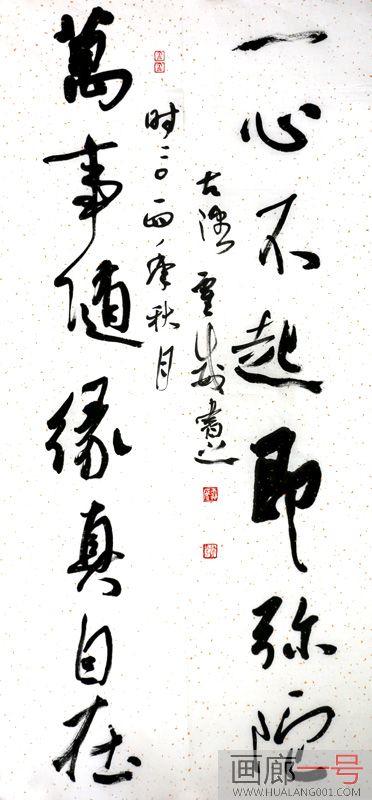 一心不起即弥陀
萬事随缘真自在
时二〇一四年秋月
画廊一号
WWW.HUALANG001.COM